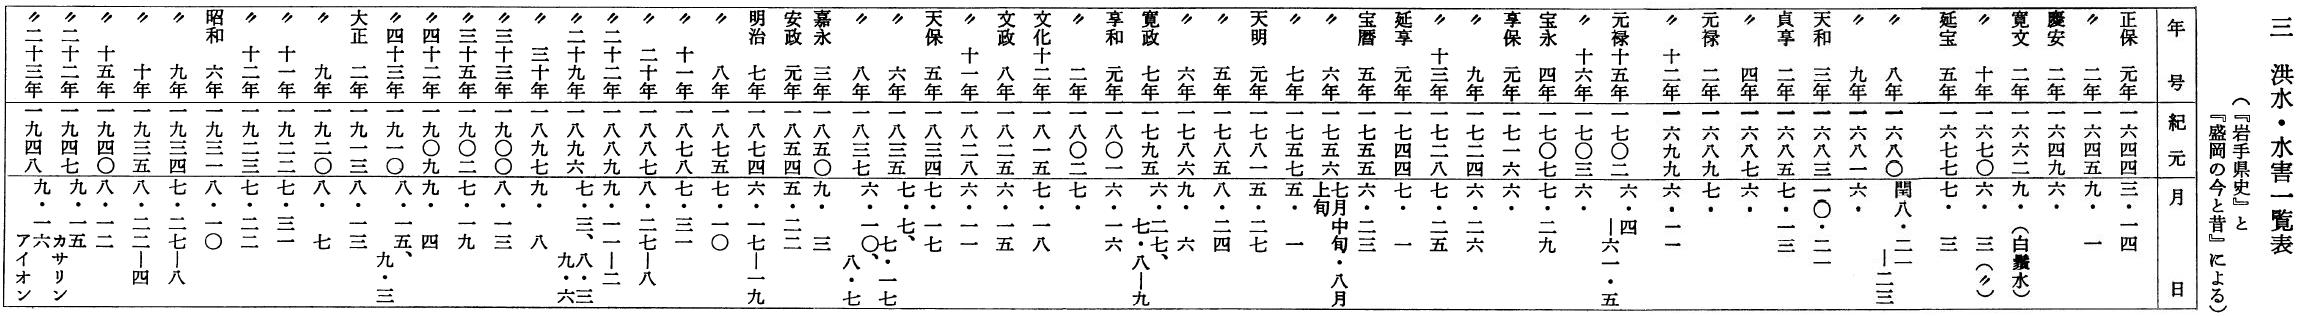 三　洪水・水害一覧表
（『岩手県史』と
『盛岡の今と昔』による）
年号　紀元　月日
正保　元年　一六四四　三・一四
〃　二年　一六四五　九・　一
慶安　二年　一六四九　六・
寛文　二年　一六六二　九・（白鬚水）
〃　十年　一六七〇　六・　三（〃）
延宝　五年　一六七七　七・　三
〃　八年　一六八〇　閏八・二一―二三
〃　九年　一六八一　六・
天和　三年　一六八三　一〇・二一
貞享　二年　一六八五　七・一三
〃　四年　一六八七　六・
元禄　二年　一六八九　七・
〃　十二年　一六九九　六・一一
元禄十五年　一七〇二　六・四―六一・五
〃　十六年　一七〇三　六・
宝永　四年　一七〇七　七・二九
享保　元年　一七一六　六・
〃　九年　一七二四　六・二六
〃　十三年　一七二八　七・二五
延享　元年　一七四四　七・　一
宝暦　五年　一七五五　六・二三
〃　六年　一七五六　七月中旬・八月上旬
〃　七年　一七五七　五・　一
天明　元年　一七八一　五・二七
〃　五年　一七八五　八・二四
〃　六年　一七八六　九・　六
寛政　七年　一七九五　六・二七、七・八―九
享和　元年　一八〇一　六・一六
〃　二年　一八〇二　七・
文化十二年　一八一五　七・一八
文政　八年　一八二五　六・一五
〃　十一年　一八二八　六・一一
天保　五年　一八三四　七・一七
〃　六年　一八三五　七・七、七・一七
〃　八年　一八三七　六・一〇、八・七
嘉永　三年　一八五〇　九・　三
安政　元年　一八五四　五・二二
明治　七年　一八七四　六・一七―一九
〃　八年　一八七五　七・一〇
〃　十一年　一八七八　七・三一
〃　二十年　一八八七　八・二七―八
〃二十二年　一八八九　九・一一―二
〃二十九年　一八九六　七・三、八・三　九・六
〃　三十年　一八九七　九・　八
〃三十三年　一九〇〇　八・一三
〃三十五年　一九〇二　七・一九
〃四十二年　一九〇九　九・　四
〃四十三年　一九一〇　八・一五、九・三
大正　二年　一九一三　八・一三
〃　九年　一九二〇　八・　七
〃　十一年　一九二二　七・三一
〃　十二年　一九二三　七・二二
昭和　六年　一九三一　八・一〇
〃　九年　一九三四　七・二七―八
〃　十年　一九三五　八・二二―四
〃　十五年　一九四〇　八・一二
〃二十二年　一九四七　九・一五　カサリン
〃二十三年　一九四八　九・一六　アイオン